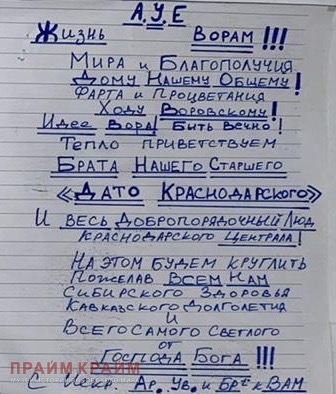 А.У.Е
Жизнь Ворам!!!
Мира и Благополучия
Дому Нашему Общему!
Фарта и Процветания
Ходу Воровскому!
Идее Вора Быть Вечно!
Тепло приветствуем
Брата Нашего Старшего
«Дато Краснодарского»
И весь Добропорядочный Люд
Краснодарского Централа!
На этом будем круглить
Пожелав Всем Нам
Сибирского Здоровья
Кавказского Долголетия
и
Всего Самого Светлого
от
Господа Бога!!!
ПРАЙМ КРАЙМ
С Искр. Ар. Ув. и Бр к Вам